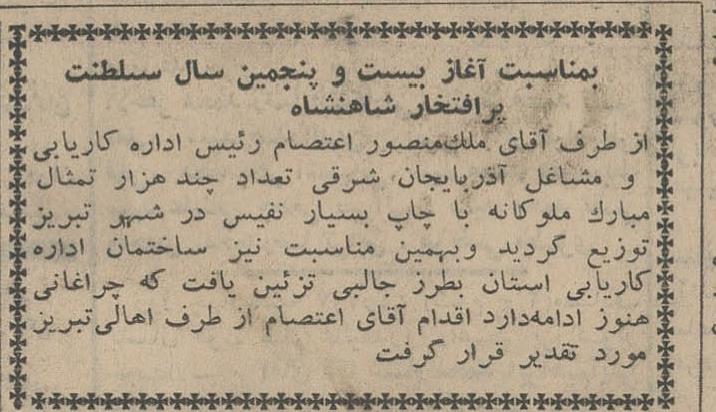 بمناسبت آغاز بیست و پنجمین سال سلطنت
پرافتخار شاهنشاه
از طرف آقای ملك‌منصور اعتصام رئیس اداره کاریابی
و مشاغل آذربایجان شرقی تعداد چند هزار تمثال
مبارك ملوکانه با چاپ بسیار نفیس در شهر تبریز
توزیع گردید و بهمین مناسبت نیز ساختمان اداره
کاریابی استان بطرز جالبی تزئین یافت که چراغانی
هنوز ادامه‌دارد اقدام آقای اعتصام از طرف اهالی تبریز
مورد تقدیر قرار گرفت